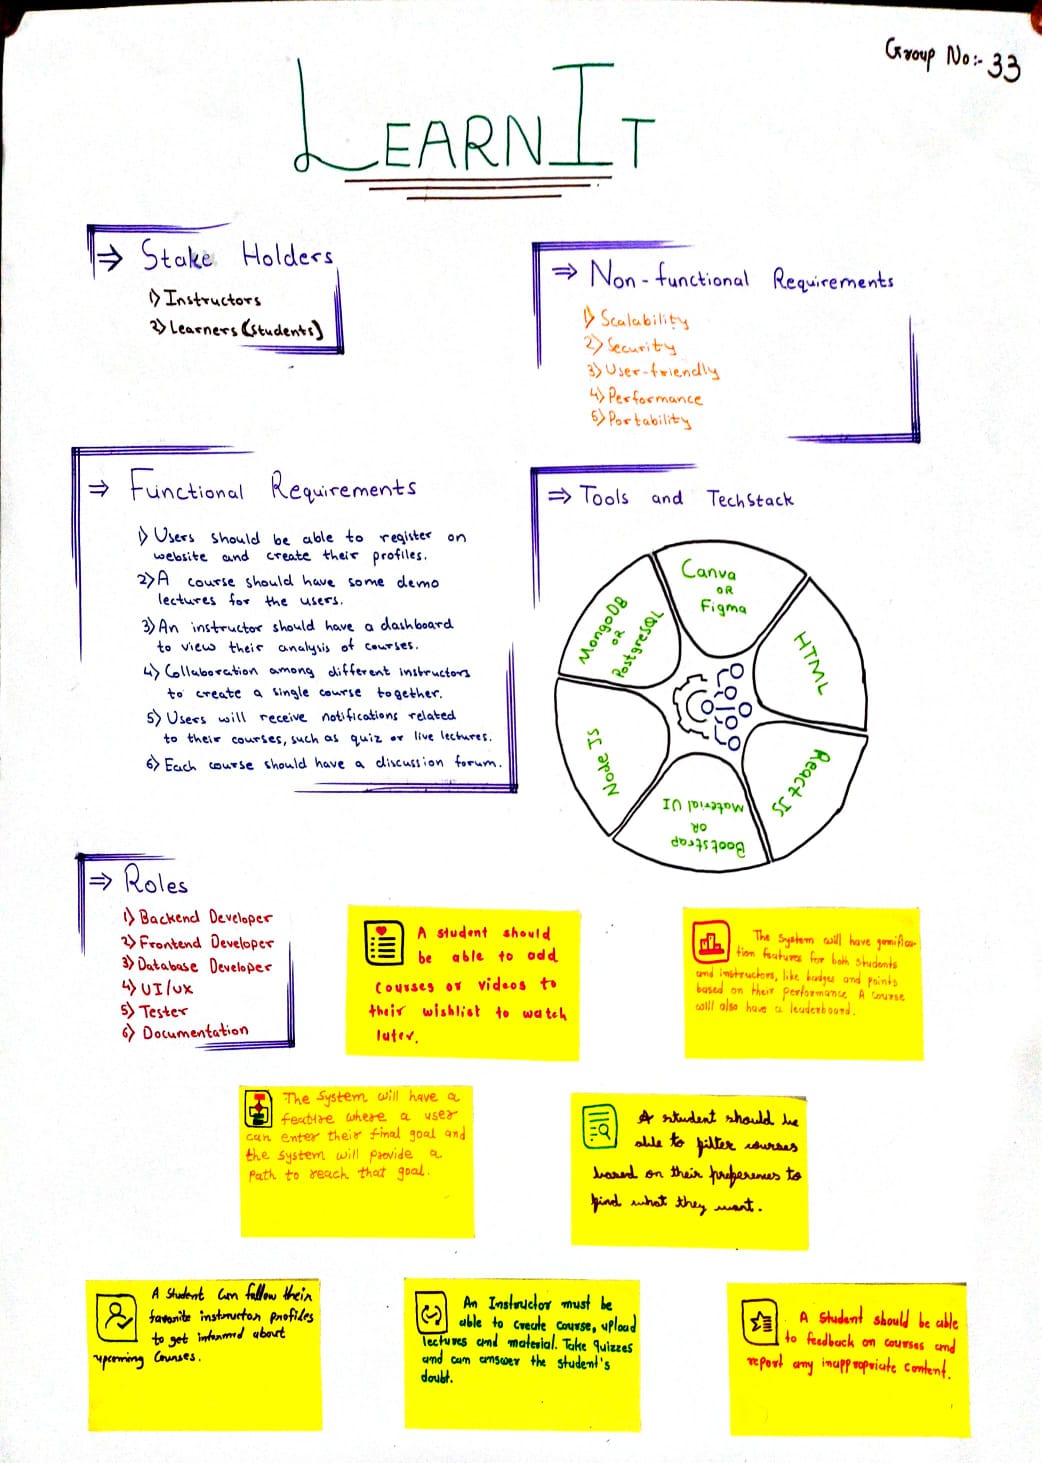 Group No:- 33
LEARNIT
⇒ Stake Holders
1) Instructors
2) Learners (students)
⇒ Non-functional Requirements
1) Scalability
2) Security
3) User-friendly
4) Performance
5) Portability
⇒ Functional Requirements
1) Users should be able to register on
website and create their profiles.
2) A course should have some demo
lectures for the users.
3) An instructor should have a dashboard
to view their analysis of courses.
4) Collaboration among different instructors
to create a single course together.
5) Users will receive notifications related
to their courses, such as quiz or live lectures.
6) Each course should have a discussion forum.
⇒ Tools and TechStack
Canva
OR
Figma
HTML
React JS
Bootstrap
OR
Material UI
Node JS
MongoDB
OR
PostgreSQL
⇒ Roles
1) Backend Developer
2) Frontend Developer
3) Database Developer
4) UI/UX
5) Tester
6) Documentation
A student should
be able to add
courses or videos to
their wishlist to watch
later.
The System will have gamifica-
tion features for both students
and instructors, like badges and points
based on their performance. A course
will also have a leaderboard.
The System will have a
feature where a user
can enter their final goal and
the system will provide a
path to reach that goal.
A student should be
able to filter courses
based on their preferences to
find what they want.
A student can follow their
favorite instructor profiles
to get informed about
upcoming courses.
An Instructor must be
able to create course, upload
lectures and material. Take quizzes
and can answer the student's
doubt.
A student should be able
to feedback on courses and
report any inappropriate content.